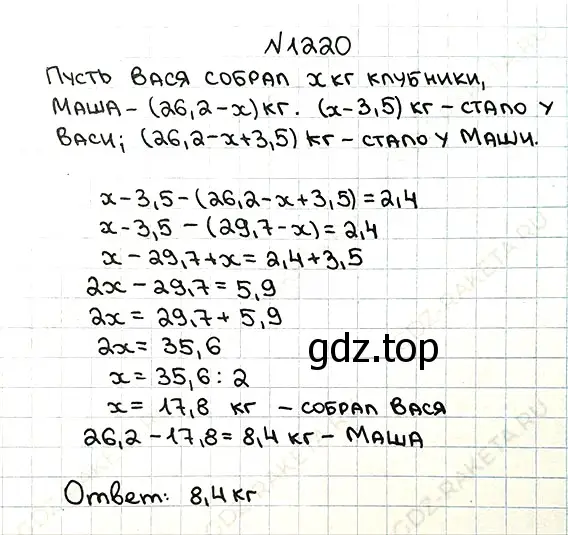 N1220
Пусть Вася собрал x кг клубники,
Маша – (26,2-x) кг. (x-3,5) кг – стало у
Васи; (26,2-x+3,5) кг – стало у Маши.
x-3,5-(26,2-x+3,5)=2,4
x-3,5-(29,7-x)=2,4
x-29,7+x=2,4+3,5
2x-29,7=5,9
2x=29,7+5,9
2x=35,6
gdz.top
x=35,6:2
x=17,8 кг – собрал Вася
26,2-17,8=8,4 кг – Маша
Ответ: 8,4 кг
GDZ-RAKETA.RU